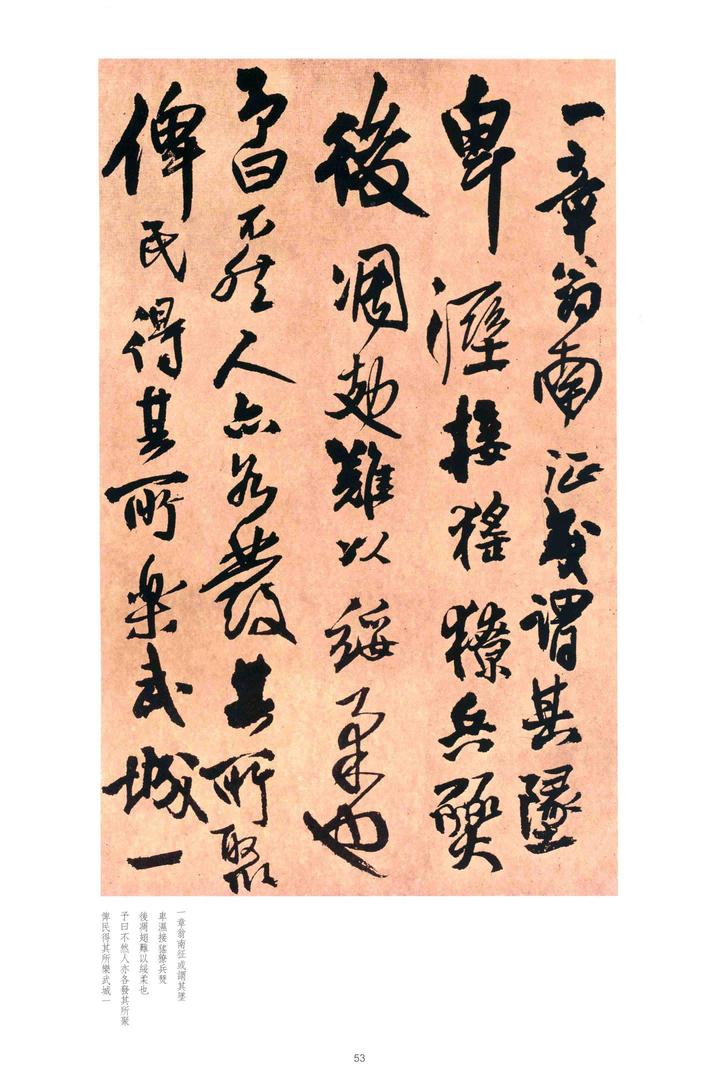 一章翁南征或謂其墜
卑溼接猺獠兵燹
後凋難以綏柔也
予曰不然人亦各發其所聚
俾民得其所樂武城一
一章翁南征或謂其墜
卑濕接猺獠兵燹
後凋難以綏柔也
予曰不然人亦各發其所聚
俾民得其所樂武城一
53